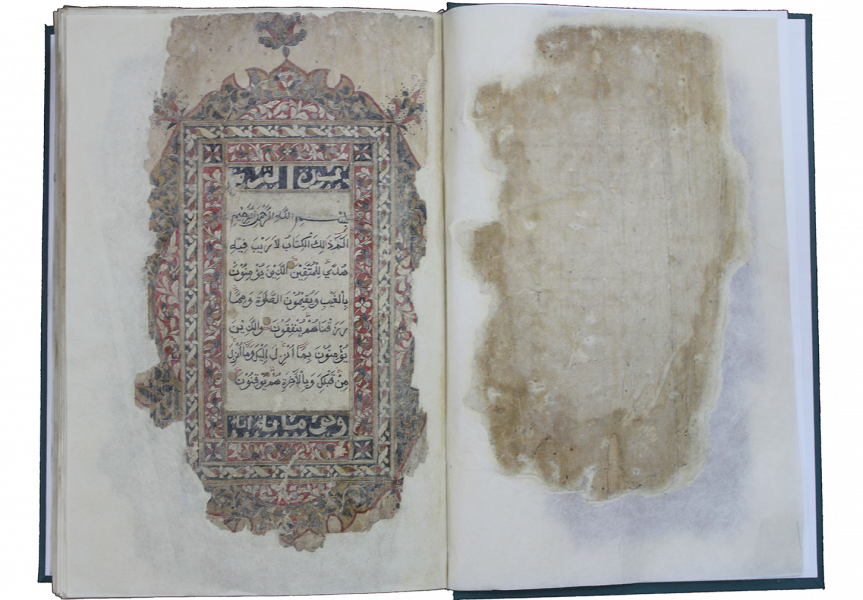 سورة البقرة
بِسْمِ اللَّهِ الرَّحْمٰنِ الرَّحِيمِ
الٓمّٓ ذٰلِكَ الْكِتَابُ لَا رَيْبَ فِيهِ
هُدًى لِلْمُتَّقِينَ الَّذِينَ يُؤْمِنُونَ
بِالْغَيْبِ وَيُقِيمُونَ الصَّلٰوةَ وَمِمَّا
رَزَقْنَاهُمْ يُنْفِقُونَ وَالَّذِينَ
يُؤْمِنُونَ بِمَا أُنْزِلَ إِلَيْكَ وَمَا أُنْزِلَ
مِنْ قَبْلِكَ وَبِالْآخِرَةِ هُمْ يُوقِنُونَ
وهي مائة اية